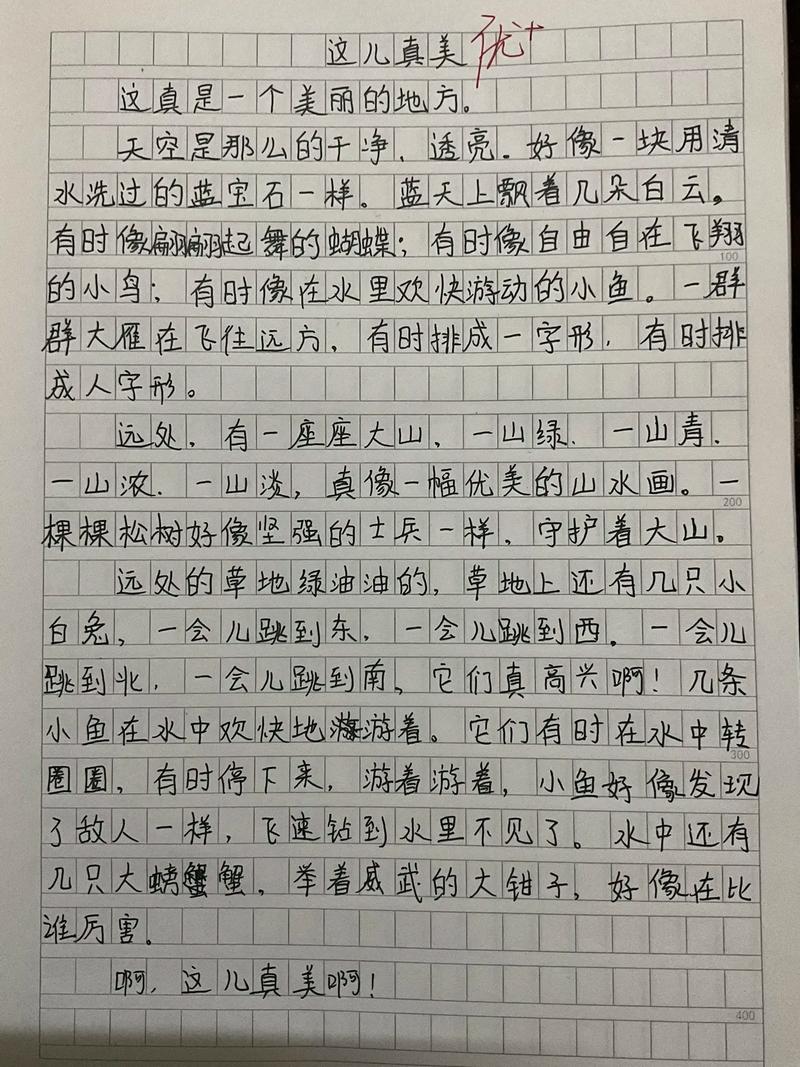 这儿真美 优+
这真是一个美丽的地方。
天空是那么的干净、透亮。好像一块用清
水洗过的蓝宝石一样。蓝天上飘着几朵白云。
有时像翩翩起舞的蝴蝶；有时像自由自在飞翔
100
的小鸟；有时像在水里欢快游动的小鱼。一群
群大雁在飞往远方，有时排成一字形，有时排
成人字形。
远处，有一座座大山，一山绿、一山青、
一山浓、一山淡，真像一幅优美的山水画。一
200
棵棵松树好像坚强的士兵一样，守护着大山。
远处的草地绿油油的，草地上还有几只小
白兔，一会儿跳到东，一会儿跳到西。一会儿
跳到北，一会儿跳到南，它们真高兴啊！几条
小鱼在水中欢快地游着。它们有时在水中转
300
圈圈，有时停下来，游着游着，小鱼好像发现
了敌人一样，飞速钻到水里不见了。水中还有
几只大螃蟹，举着威武的大钳子，好像在比
谁厉害。
啊，这儿真美啊！
400